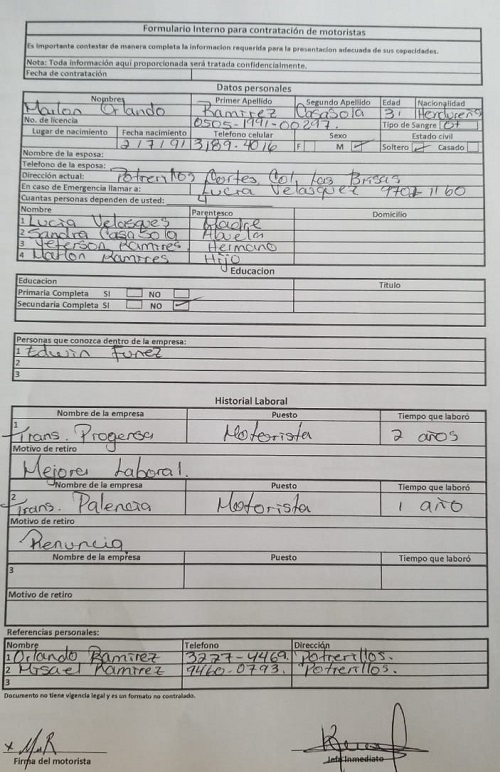 Formulario Interno para contratación de motoristas
Es importante contestar de manera completa la informacion requerida para la presentacion adecuada de sus capacidades.
Nota: Toda información aquí proporcionada será tratada confidencialmente.
Fecha de contratación
Datos personales
Nombres Primer Apellido Segundo Apellido Edad Nacionalidad
Marlon Orlando Ramirez Casasola 31 Hondureña
No. de licencia 0505-1991-00297 Tipo de Sangre O+
Lugar de nacimiento Fecha nacimiento Telefono celular Sexo Estado civil
2/7/91 3189-4016 F M Soltero Casado
Nombre de la esposa:
Telefono de la esposa:
Dirección actual: Potrerillos Cortes, Col, Las Brisas
En caso de Emergencia llamar a: Lucia Velasquez 1160
Cuantas personas dependen de usted: 4
Nombre Parentesco Domicilio
1 Lucia Velasques Madre
2 Sandra Casasola Abuela
3 Jeferson Ramires Hermano
4 Marlon Ramires Hijo
Educacion
Educacion Titulo
Primaria Completa SI NO
Secundaria Completa SI NO
Personas que conozca dentro de la empresa:
1 Edwin Funez
2
3
Historial Laboral
Nombre de la empresa Puesto Tiempo que laboró
1
Trans. Progersa Motorista 2 años
Motivo de retiro
Mejora Laboral.
Nombre de la empresa Puesto Tiempo que laboró
2
Trans. Palencia Motorista 1 año
Motivo de retiro
Renuncia.
Nombre de la empresa Puesto Tiempo que laboró
3
Motivo de retiro
Referencias personales:
Nombre Telefono Dirección
1 Orlando Ramirez 3277-4469. Potrerillos.
2 Misael Ramirez 9460-0793. Potrerillos.
3
Documento no tiene vigencia legal y es un formato no controlado.
x
Firma del motorista Jefe Inmediato